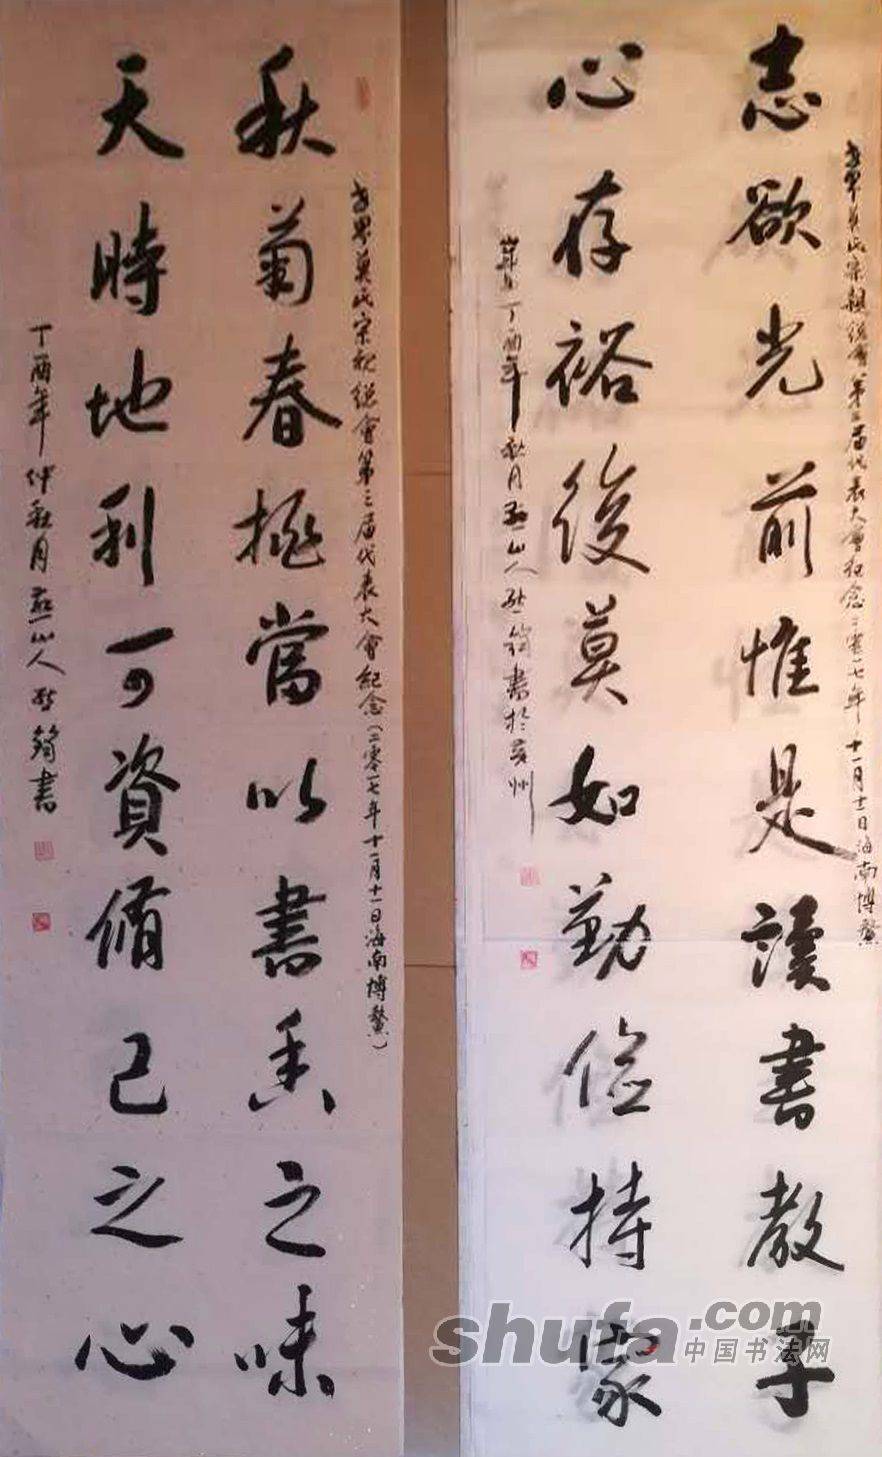 志欲光前惟是读書教子
心存裕後莫如勤儉持家
世界莫氏宗親總會第三届代表大會紀念二零一七年十一月十一日海南博鳌
丁酉年秋月燕山人
書於
州
秋菊春桃當以書香之味
天時地利可資脩己之心
世界莫氏宗親總會第三届代表大會紀念(二零一七年十一月十一日海南博鳌)
丁酉年仲秋月燕山人
書
shufa.com
中国书法网